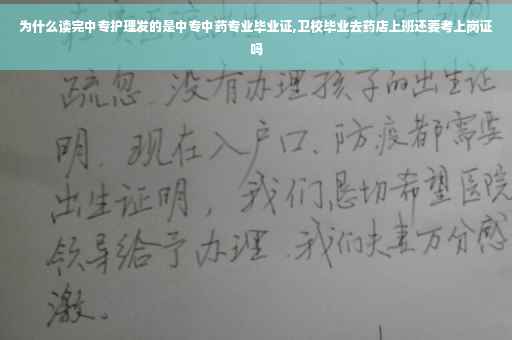 为什么读完中专护理发的是中专中药专业毕业证,卫校毕业去药店上班还要考上岗证
吗
疏忽.没有办理孩子的出生证
明.现在入户口、防疫都需要
出生证明，我们恳切希望医院
领导给予办理.我们夫妻万分感
激。